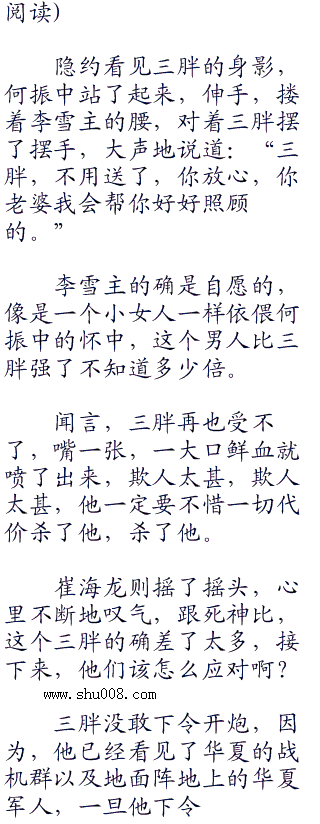 阅读)
隐约看见三胖的身影，
何振中站了起来，伸手，搂
着李雪主的腰，对着三胖摆
了摆手，大声地说道：“三
胖，不用送了，你放心，你
老婆我会帮你好好照顾
的。”
李雪主的确是自愿的，
像是一个小女人一样依偎何
振中的怀中，这个男人比三
胖强了不知道多少倍。
闻言，三胖再也受不
了，嘴一张，一大口鲜血就
喷了出来，欺人太甚，欺人
太甚，他一定要不惜一切代
价杀了他，杀了他。
崔海龙则摇了摇头，心
里不断地叹气，跟死神比，
这个三胖的确差了太多，接
下来，他们该怎么应对啊？
www.shu008.com
三胖没敢下令开炮，因
为，他已经看见了华夏的战
机群以及地面阵地上的华夏
军人，一旦他下令